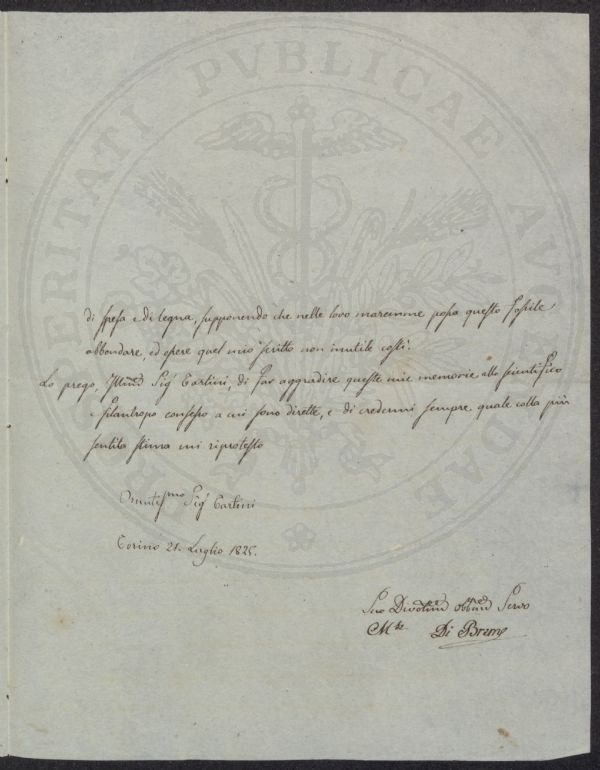 PROSPERITATI PVBLICAE AVGENDAE
di spesa e di legna, supponendo che nelle loro maremme possa questo fossile
abbondare, ed essere quel mio scritto non inutile costì.
Lo prego, Illmo Sigr Tartini, di far aggradire queste mie memorie allo scientifico
e filantropo consesso a cui sono dirette, e di credermi sempre quale colla più
sentita stima mi riprotesto
Ornatissmo Sigr Tartini
Torino 21. Luglio 1825.
Suo Divotmo obbmo Servo
Mse Di Breme